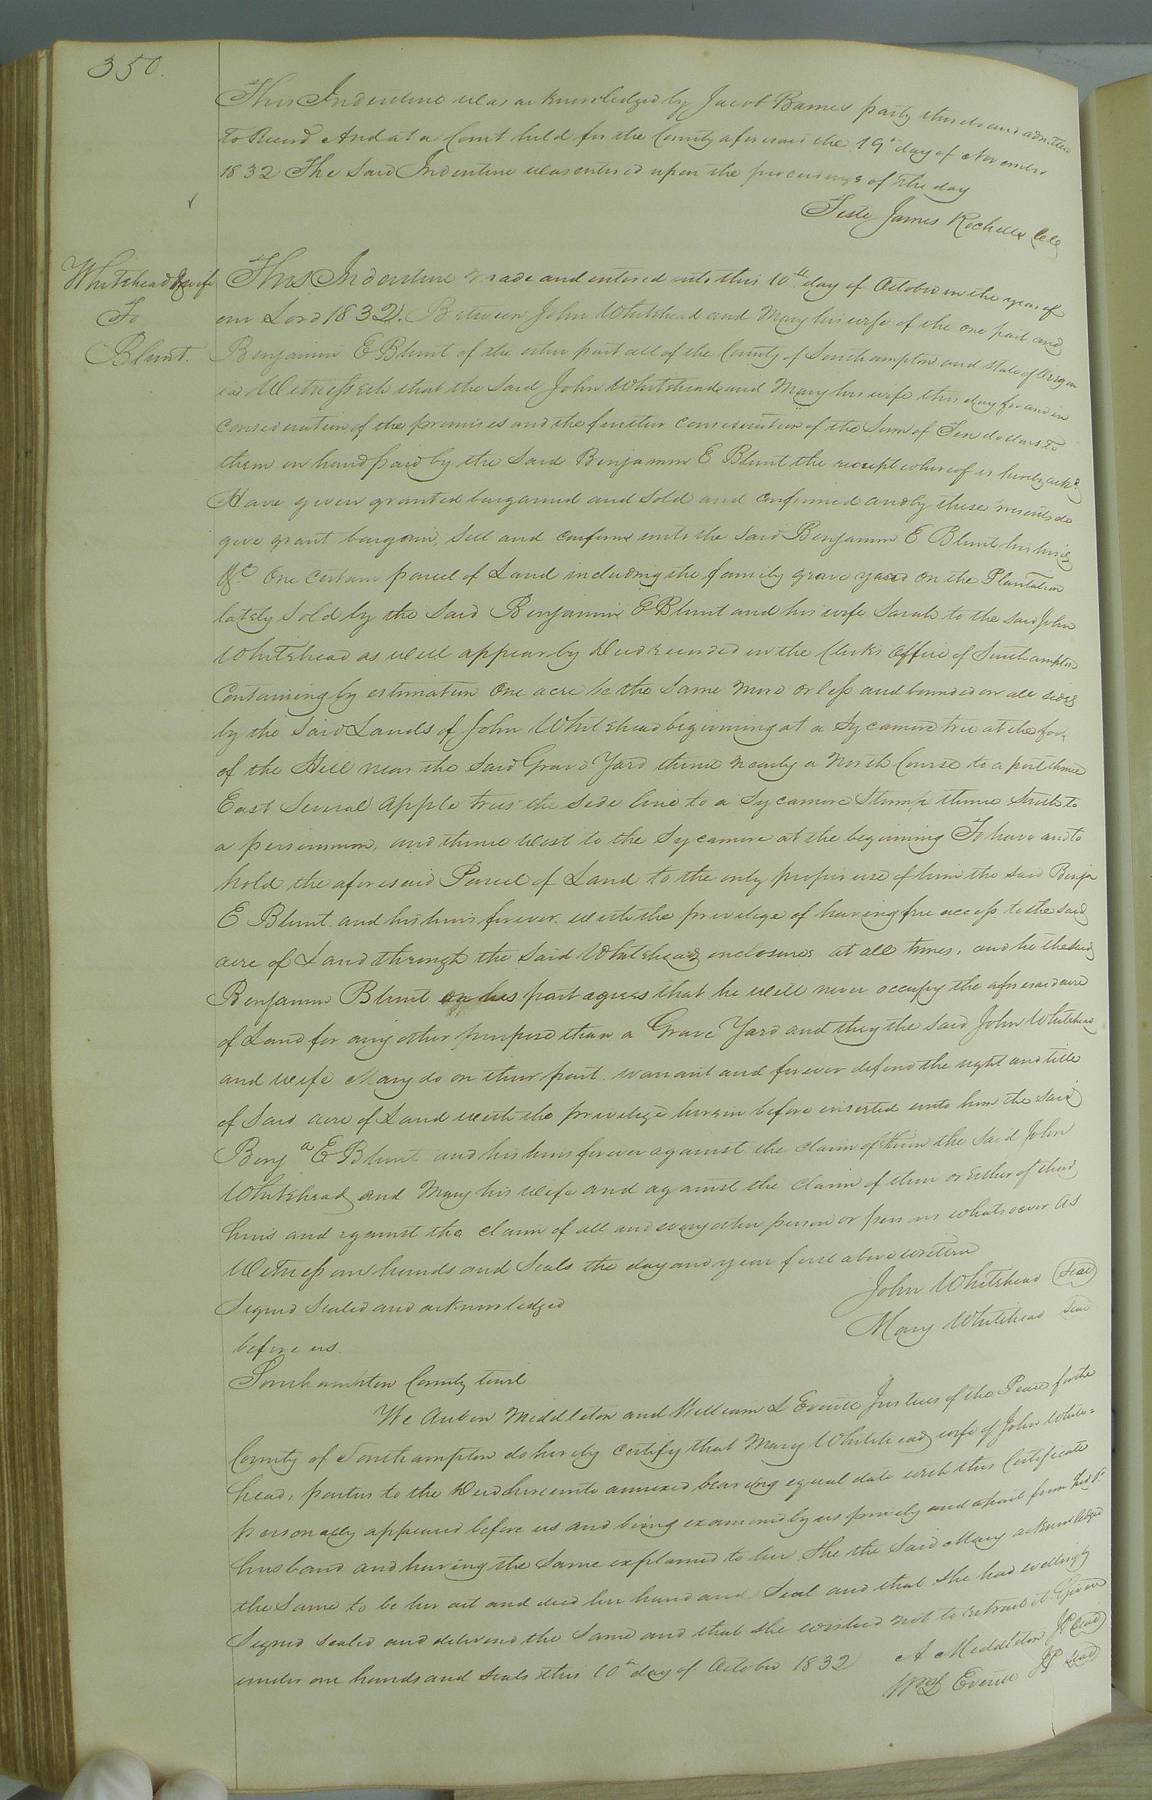 350.
This Indenture was acknowledged by Jacob Barnes party thereto and admitted
to Record And at a Court held for the County aforesaid the 19th day of November
1832 The Said Indenture was entered upon the proceedings of the day
Teste James Rochelle Clk
Whitehead & wife
To
Blunt.
This Indenture made and entered into this 10th day of October in the year of
our Lord 1832. Between John Whitehead and Mary his wife of the one part and
Benjamin E Blunt of the other part all of the County of Southampton and State of Virgin
ia Witnesseth that the Said John Whitehead and Mary his wife this day for and in
consideration of the premises and the further consideration of the Sum of Ten dollars to
them in hand paid by the Said Benjamin E Blunt the receipt whereof is hereby ackd
Have given granted bargained and Sold and confirmed and by these presents do
give grant bargain, Sell and confirm unto the Said Benjamin E Blunt his heirs
&c One certain parcel of Land including the family grave yard on the Plantation
lately Sold by the Said Benjamin E Blunt and his wife Sarah to the said John
Whitehead as will appear by Deed recorded in the Clerks Office of Southampton
Containing by estimation One acre be the Same more or less and bounded on all sides
by the Said Lands of John Whitehead beginning at a Sycamore tree at the foot
of the Hill near the Said Grave Yard thence nearly a North Course to a post thence
East Several apple trees the side line to a Sycamore Stump thence South to
a persimmon, and thence West to the Sycamore at the beginning To have and to
hold the aforesaid Parcel of Land to the only proper use of him the said Benja
E Blunt and his heirs forever with the privilege of having free access to the said
acre of Land through the Said Whitehead enclosures at all times, and he the said
Benjamin Blunt on his part agrees that he will never occupy the aforesaid acre
of Land for any other purpose than a Grave Yard and they the said John Whitehead
and wife Mary do on their part warrant and forever defend the right and title
of Said acre of Land with the privilege herein before inserted unto him the Said
Benja E Blunt and his heirs forever against the claim of them the Said John
Whitehead and Mary his wife and against the claim of their or Either of their
heirs and against the claim of all and every other person or persons whatsoever As
Witness our hands and Seals the day and year first above written
Signed Sealed and acknowledged
John Whitehead Seal
before us.
Mary Whitehead Seal
Southampton County towit
We Aubin Middleton and William L Everitt Justices of the Peace for the
County of Southampton do hereby certify that Mary Whitehead wife of John White=
head, parties to the Deed hereunto annexed bearing equal date with this Certificate
personally appeared before us and being examined by us privily and apart from her sd
husband and having the Same explained to her She the Said Mary acknowledged
the Same to be her act and deed her hand and Seal and that She had willingly
Signed Sealed and delivered the Same and that She wished not to retract it Given
under our hands and Seals this 10th day of October 1832
A Middleton JP Seal
Wm L Everitt JP Seal